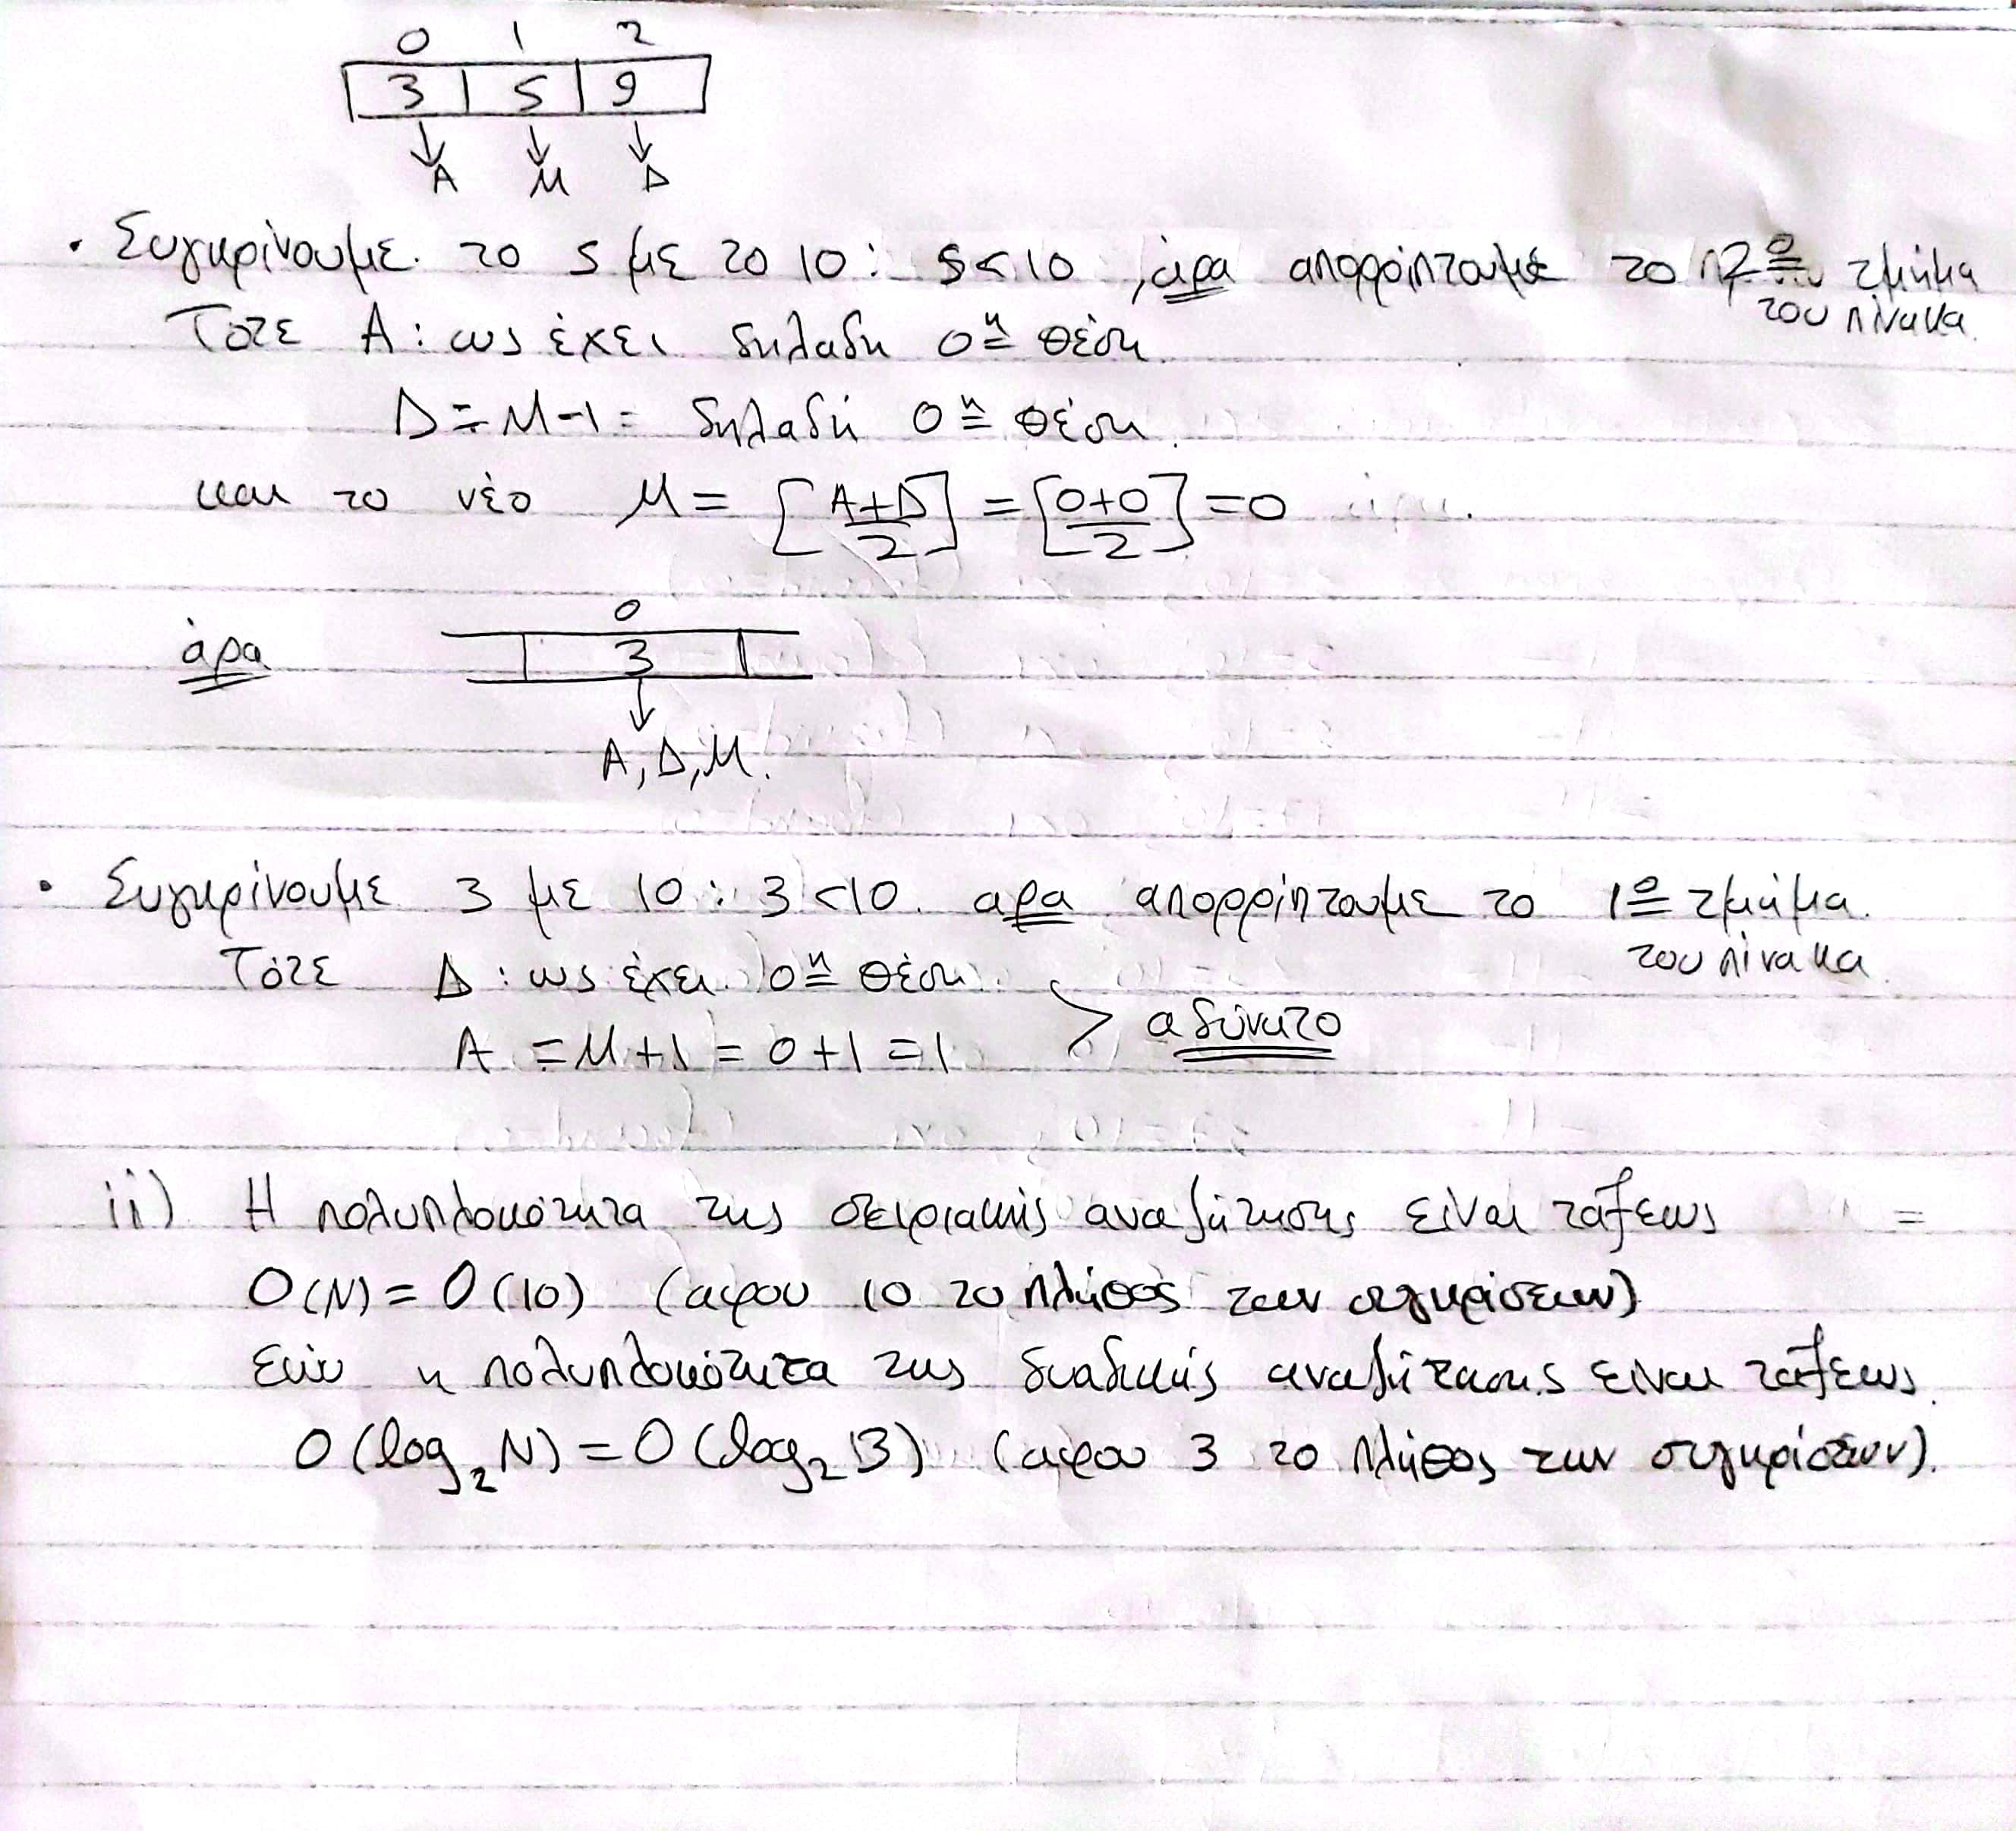 0 1 2
3 5 9
A M Δ
• Συγκρίνουμε το 5 με το 10: 5<10, άρα απορρίπτουμε το 2ο τμήμα
του πίνακα.
Τότε A: ως έχει δηλαδή 0η θέση.
Δ = M-1 = δηλαδή 0η θέση.
και το νέο M = [A+Δ/2] = [0+0/2] = 0
0
άρα 3
A, Δ, M.
• Συγκρίνουμε 3 με 10: 3<10. αρα απορρίπτουμε το 1ο τμήμα.
του πίνακα.
Τότε Δ: ως έχει 0η θέση.
> αδύνατο
A = M+1 = 0+1 = 1
ii) Η πολυπλοκότητα της σειριακής αναζήτησης είναι τάξεως =
O(N) = O(10) (αφου 10 το πλήθος των συγκρίσεων)
Ενώ η πολυπλοκότητα της δυαδικής αναζήτησης είναι τάξεως.
O(log₂N) = O(log₂13) (αφου 3 το πλήθος των συγκρίσεων).